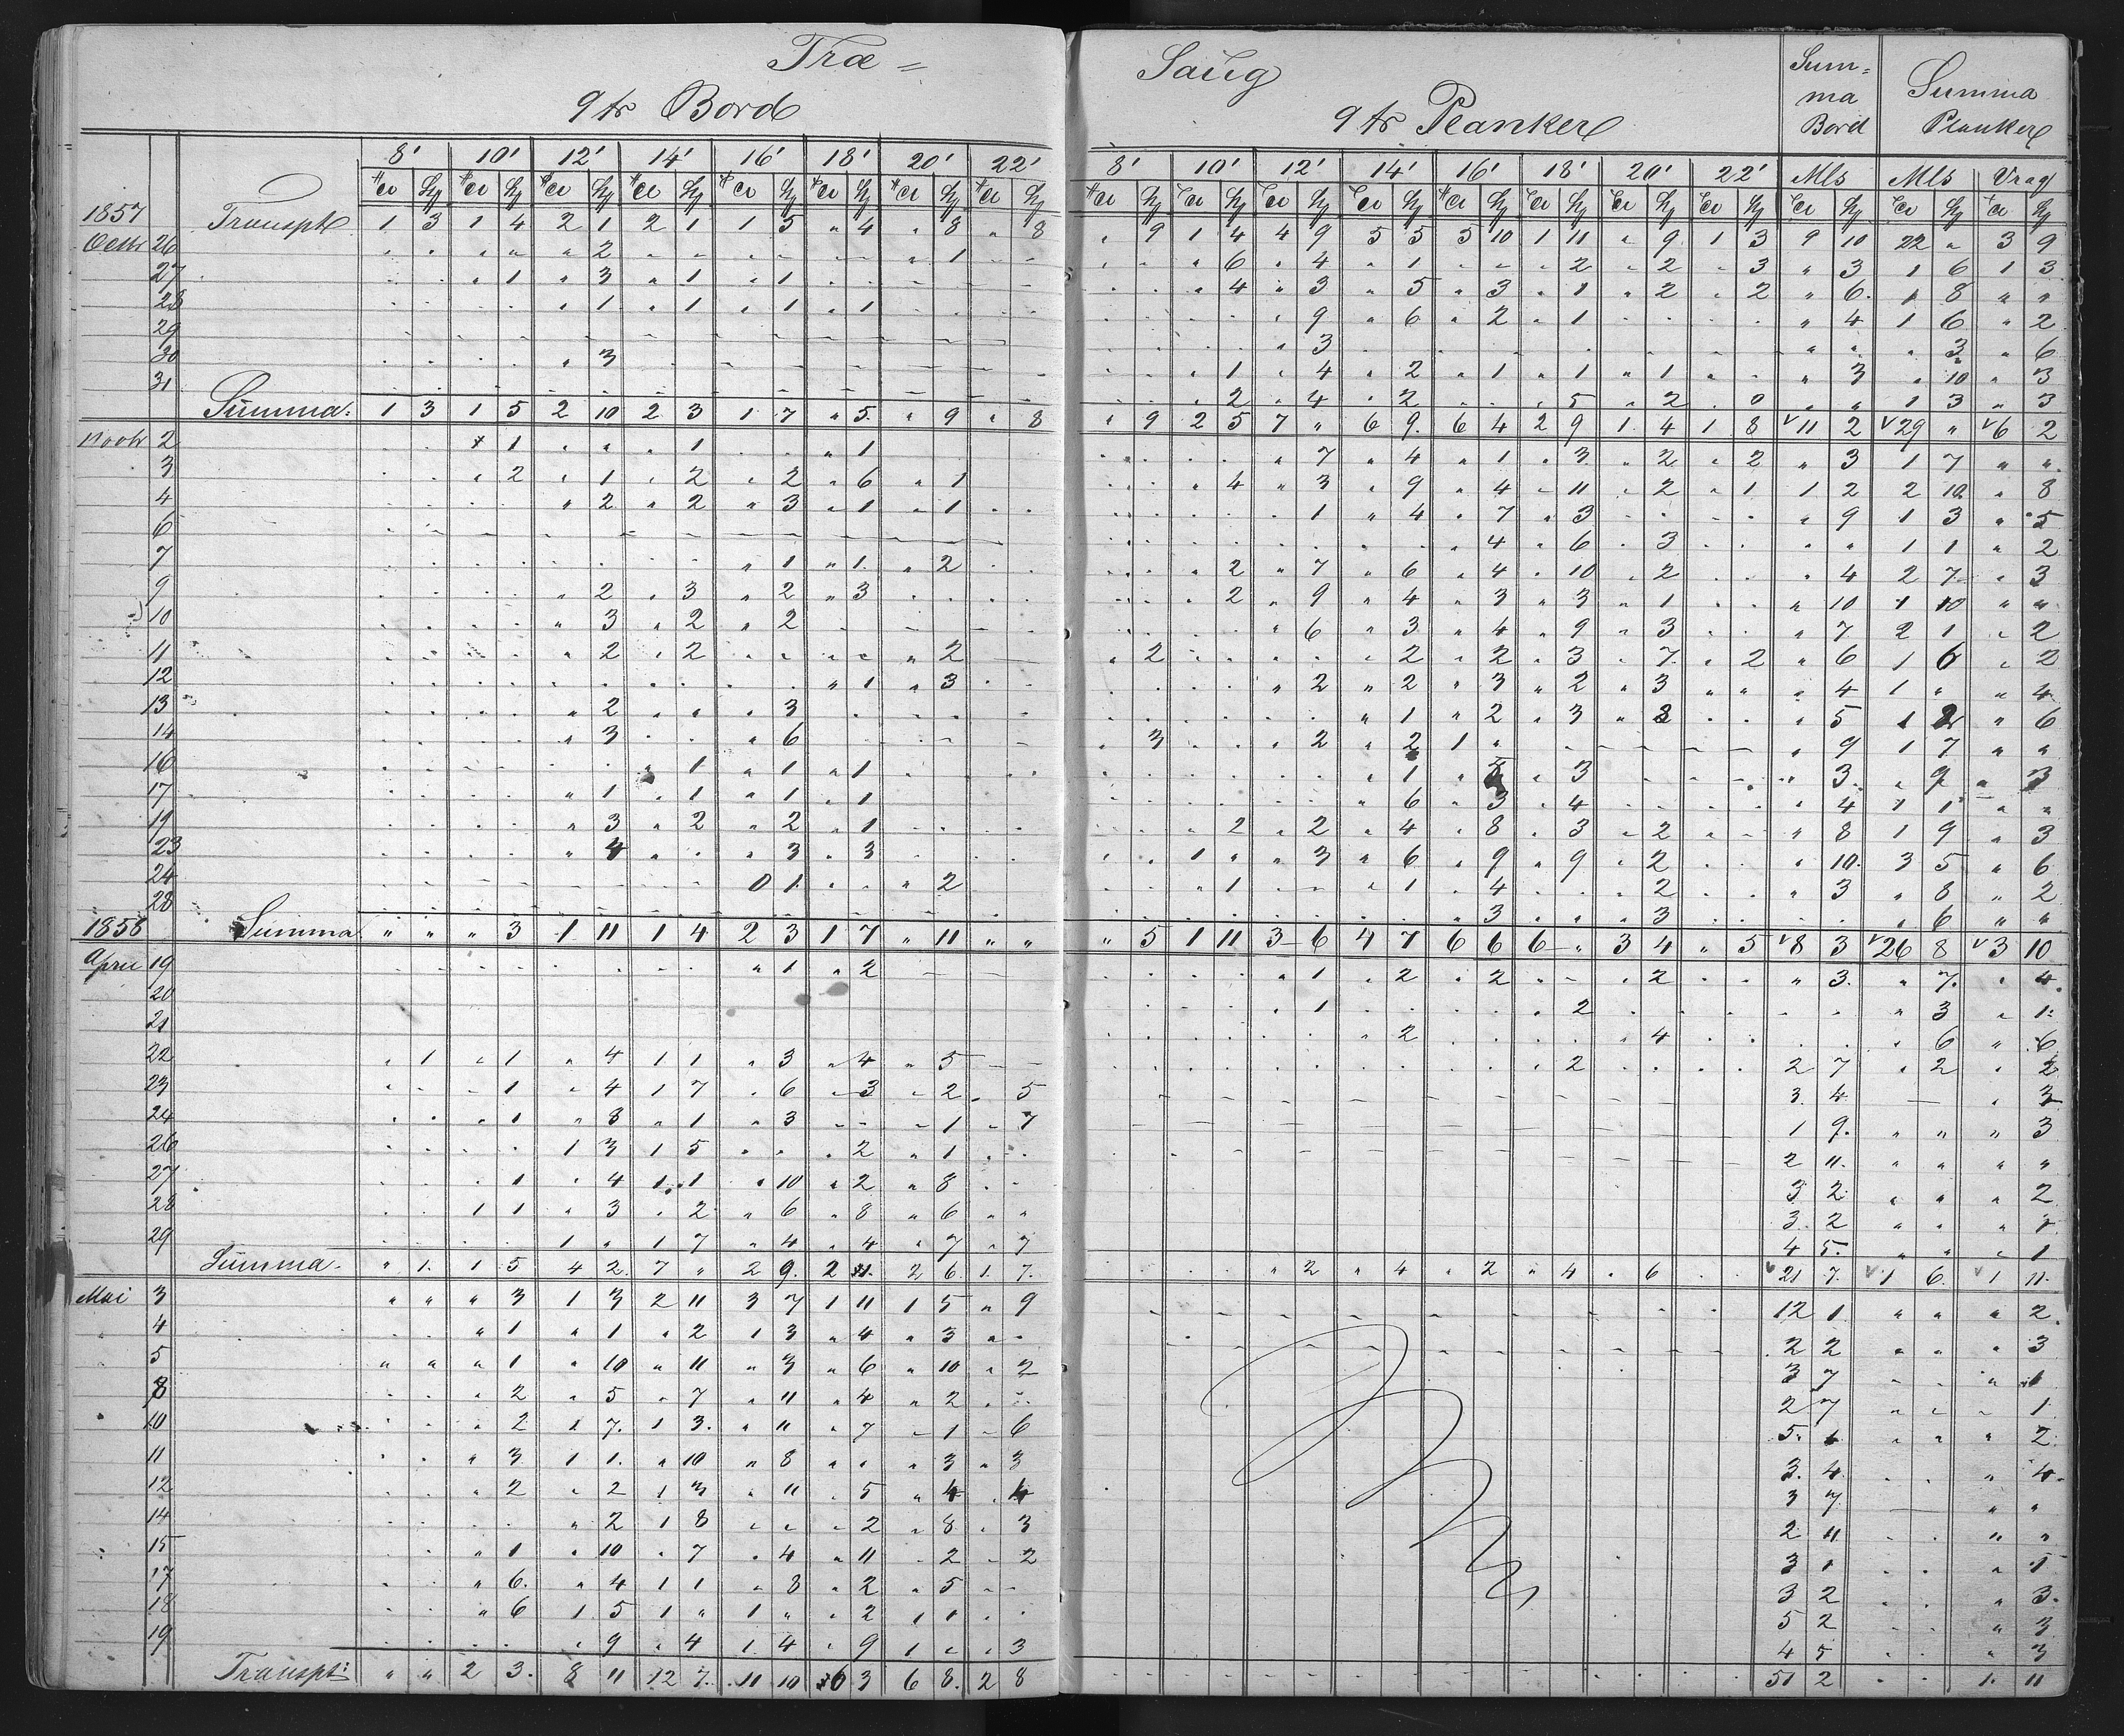 Træ = Saug
9 tr Bord 9 tr Planker Sum= ma Bord Summa Planker
8' 10' 12' 14' 16' 18' 20' 22' 8' 10' 12' 14' 16' 18' 20' 22' Mls Mls Vrag
1857 Transpt 1 3 1 4 2 1 2 1 1 5 " 4 " 8 " 8 " 9 1 4 4 9 5 5 5 10 1 11 " 9 1 3 9 10 22 " 3 9
Octbr 26 2 1 6 4 1 2 2 3 " 3 1 6 1 3
27 1 3 1 1 4 3 5 3 1 2 2 " 6 1 8 " "
28 1 1 1 1 9 6 2 1 " 4 1 6 " 2
29 3 " " " 3 " 6
30 3 1 4 2 1 1 1 " 3 " 10 " 3
31 2 4 2 5 2 0 " " 1 3 " 3
Summa: 1 3 1 5 2 10 2 3 1 7 " 5 " 9 " 8 " 9 2 5 7 " 6 9 6 4 2 9 1 4 1 8 11 2 29 " 6 2
Novbr 2 1 1 1 7 4 1 3 2 2 " 3 1 7 " "
3 2 1 2 2 6 1 4 3 9 4 11 2 1 1 2 2 10 " 8
4 2 2 3 1 1 1 4 7 3 " 9 1 3 " 5
6 4 6 3 " " 1 1 " 2
7 1 1 2 2 7 6 4 10 2 " 4 2 7 " 3
9 2 3 2 3 2 9 4 3 3 1 " 10 1 10 " "
10 3 2 2 6 3 4 9 3 " 7 2 1 " 2
11 2 2 2 2 2 2 3 7 2 " 6 1 6 " 2
12 1 3 2 2 3 2 3 " 4 1 " " 4
13 2 3 1 2 3 8 " 5 1 2 " 6
14 3 6 3 2 2 1 " " 9 1 7 " "
16 1 1 1 1 5 3 " 3 " 9 " 3
17 1 1 1 1 6 3 4 " 4 1 1 " "
19 3 2 2 1 2 2 4 8 3 2 " 8 1 9 " 3
23 4 3 3 1 " 3 6 9 9 2 " 10 3 5 " 6
24 0 1 2 1 1 4 2 " 3 " 8 " 2
28 3 3 " 6 " "
1858 Summa " " " 3 1 11 1 4 2 3 1 7 " 11 " " " 5 1 11 3 6 4 7 6 6 6 " 3 4 " 5 8 3 26 8 3 10
April 19 1 2 1 2 2 2 " 3 " 7 " 4
20 1 2 " 3 " 1
21 2 4 " 6 " 6
22 1 1 4 1 1 3 4 5 2 2 7 " 2 " 2
23 1 4 1 7 6 3 2 5 3 4 — " 3
24 1 8 1 3 1 7 1 9 " " " 3
26 1 3 1 5 2 1 2 11 " " " "
27 1 4 1 1 10 2 8 3 2 " " " 2
28 1 1 3 2 6 8 6 3 2 " "
29 1 " 1 7 4 4 7 7 4 5 " " " 1
Summa " 1 1 5 4 2 7 " 2 9 2 11 2 6 1 7 " 2 " 4 " 2 " 4 " 6 21 7 1 6 1 11
Mai 3 " " " 3 1 3 2 11 3 7 1 11 1 5 " 9 12 1 " " " 2
4 1 1 2 1 3 4 3 2 2 " " " 3
5 1 10 11 3 6 10 2 3 7 1
8 2 5 7 11 4 2 2 7 1
10 2 1 7 1 3 11 7 1 6 5 1 2
11 3 1 1 10 8 3 3 3 4 4
12 2 2 1 3 11 5 4 4 3 7 " "
14 2 1 8 2 8 3 2 11 " "
15 1 10 7 4 11 2 2 3 1 1
17 6 4 1 1 8 2 5 3 2 3
18 6 1 5 1 " 1 " 2 1 1 5 2 3
19 9 4 1 4 9 1 3 4 5 3
Transpt: " " 2 3 8 11 12 7 11 10 6 3 6 8 2 8 51 2 1 11